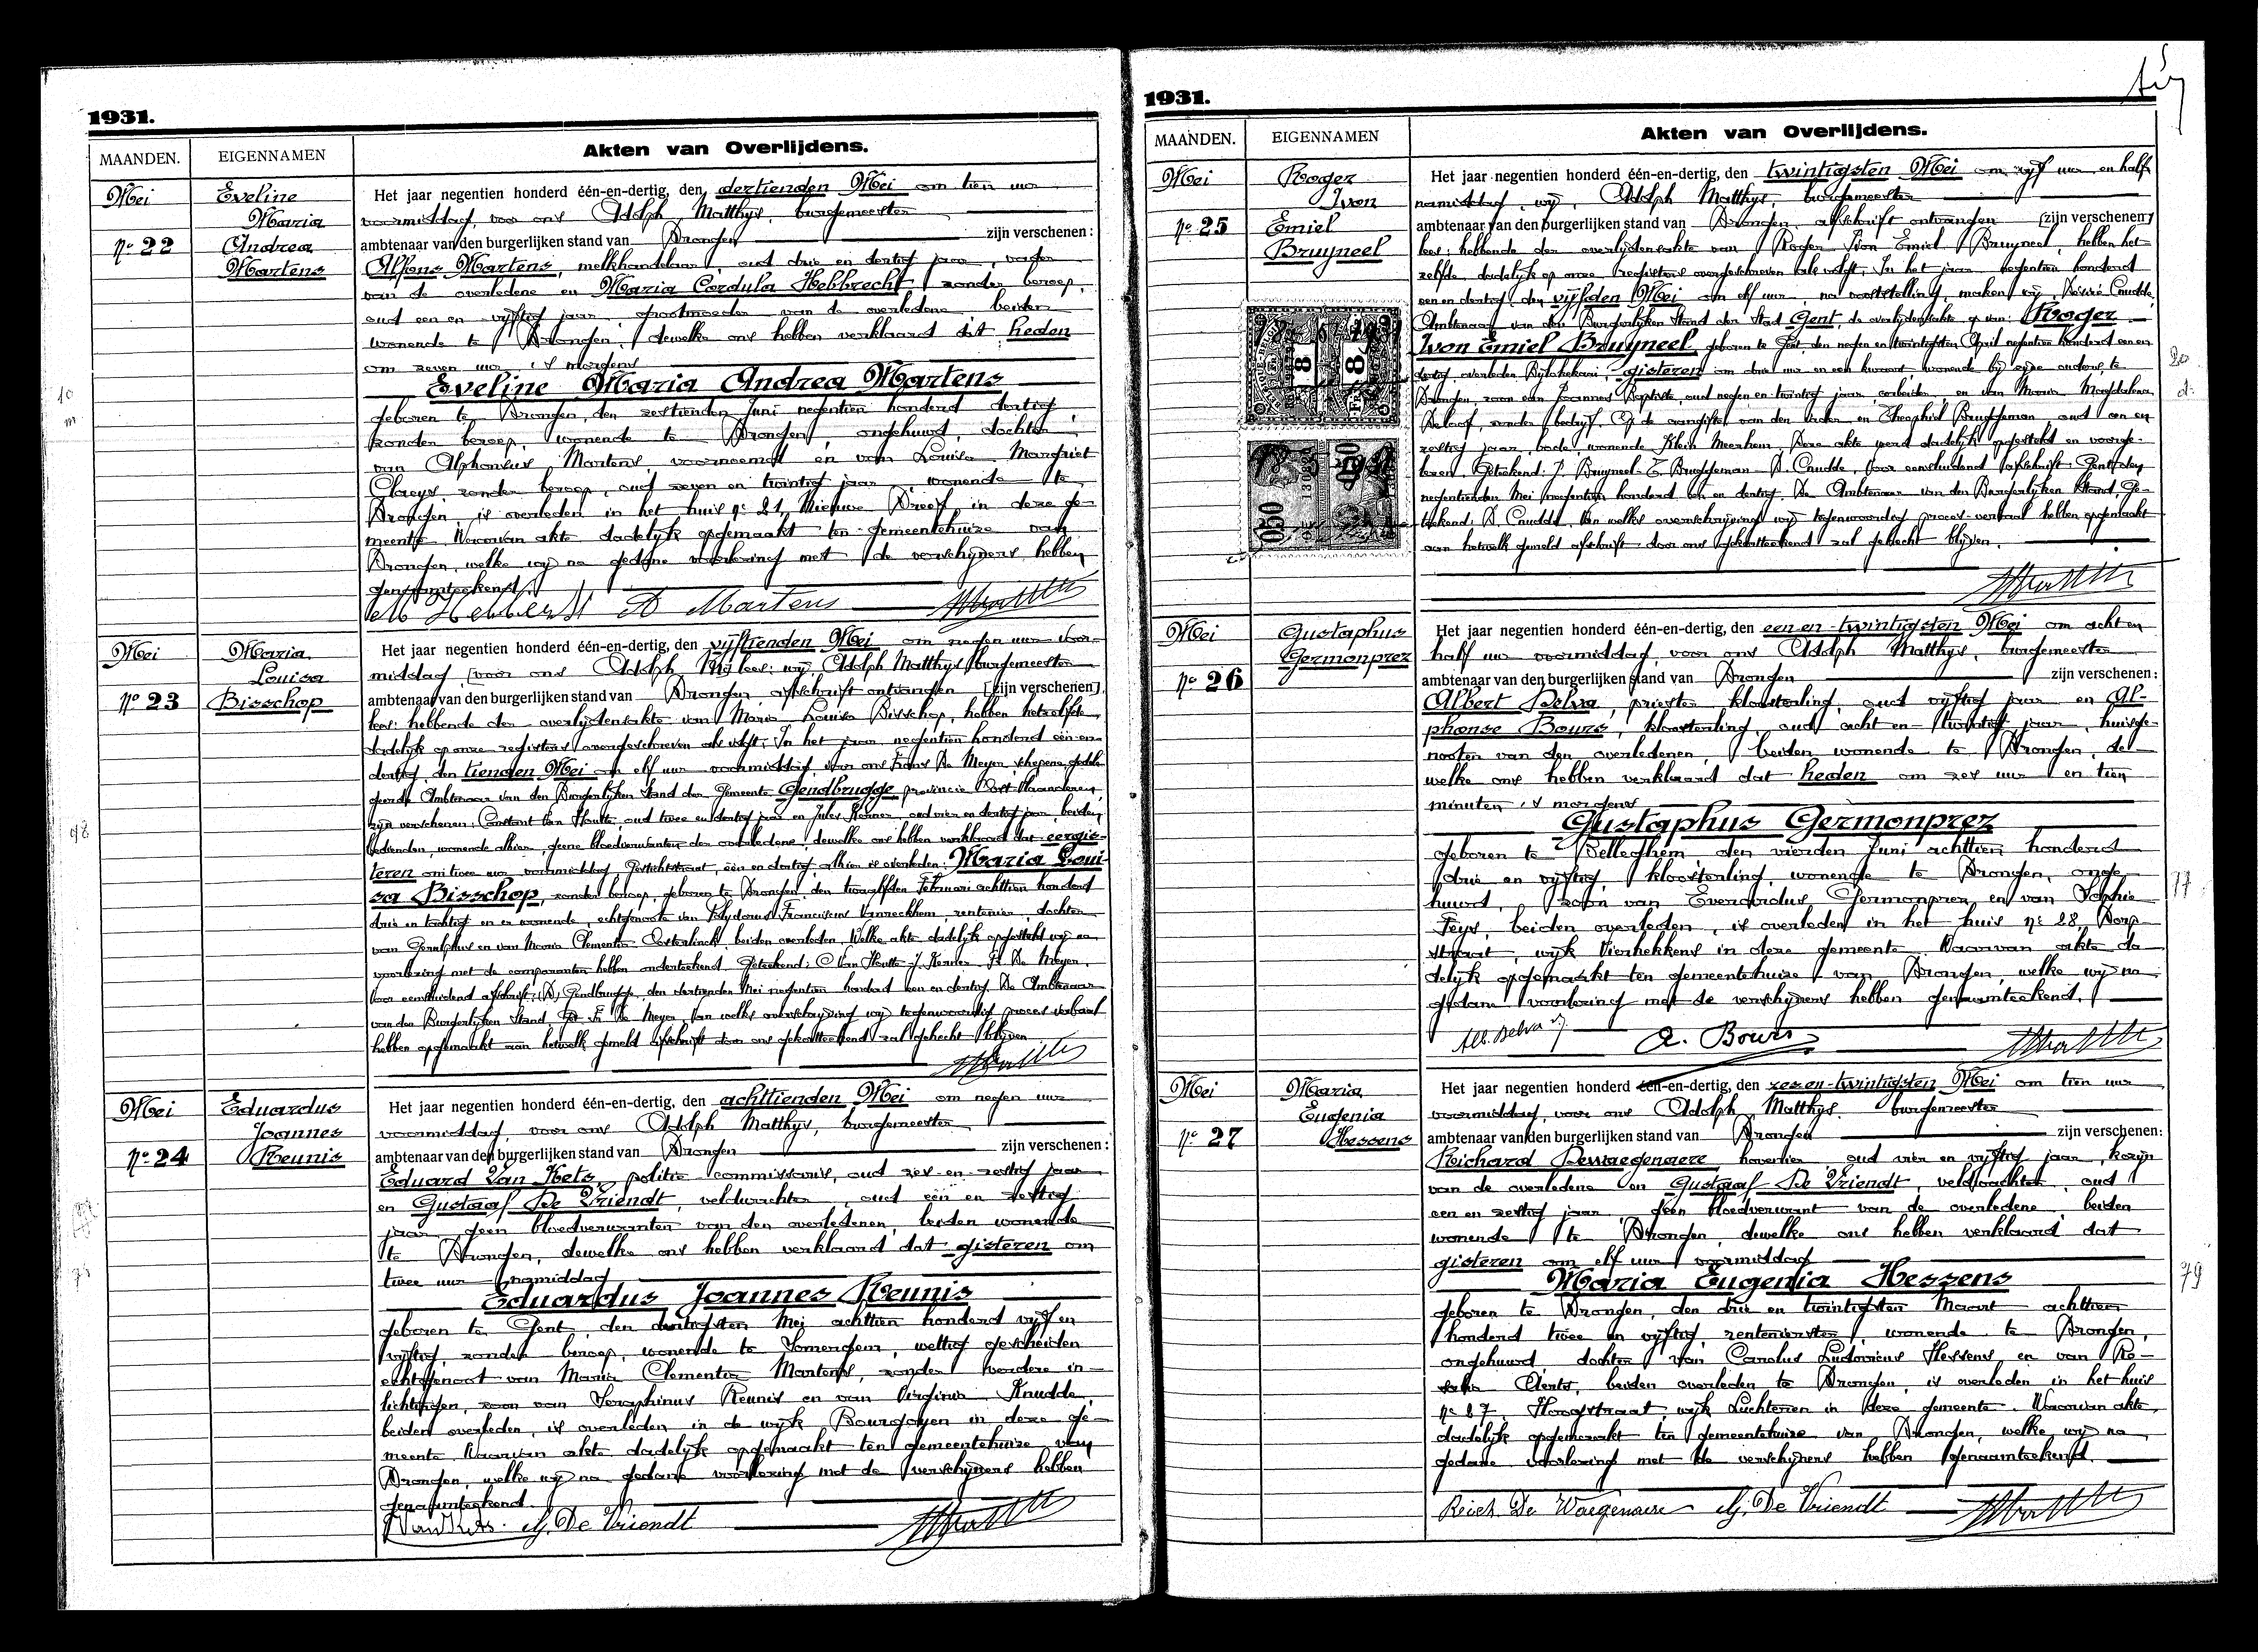 1931.
MAANDEN. EIGENNAMEN Akten van Overlijdens.
Mei
No 22
Eveline
Maria
Andrea
Martens
Het jaar negentien honderd één-en-dertig, den dertienden Mei om tien uur
voormiddag, voor ons Adolph Matthys, burgemeester
ambtenaar van den burgerlijken stand van Drongen zijn verschenen:
Alfons Martens, melkhandelaar, oud drie en dertig jaar, vader
van de overledene en Maria Cordula Hebbrecht, zonder beroep,
oud een en vijftig jaar, grootmoeder van de overledene, beiden
wonende te Drongen, dewelke ons hebben verklaard dat heden
om zeven uur 's morgens
Eveline Maria Andrea Martens
geboren te Drongen, den zestienden Juni negentien honderd dertig,
zonder beroep, wonende te Drongen, ongehuwd, dochter
van Alphonsus Martens voornoemd en van Louisa Margriet
Claeys, zonder beroep, oud zeven en twintig jaar, wonende te
Drongen is overleden in het huis No 21, Nieuwe Dreef in deze ge-
meente. Waarvan akte dadelijk opgemaakt ten gemeentehuize van
Drongen, welke wij na gedane voorlezing met de verschijners hebben
genaamteekend.
M Hebbrecht A Martens
Mei
No 23
Maria
Louisa
Bisschop
Het jaar negentien honderd één-en-dertig, den vijftienden Mei om negen uur voor-
middag, voor ons Adolph M, lees: wij, Adolph Matthys burgemeester
ambtenaar van den burgerlijken stand van Drongen afschrift ontvangen [zijn verschenen]
lees: hebbende der overlijdensakte van Maria Louisa Bisschop, hebben hetzelfde
dadelijk op onze registers overgeschreven als volgt: In het jaar negentien honderd één en
dertig, den tienden Mei om elf uur voormiddag, voor ons Frans De Meyer, schepene, gedele-
geerde Ambtenaar van den Burgerlijken Stand der Gemeente Gendbrugge provincie Oost-Vlaanderen,
zijn verschenen: Constant Van Houtte, oud twee en dertig jaar en Jules Kerner, oud vier en dertig jaar, beiden
bedienden, wonende alhier, geene bloedverwanten der overledene, dewelke ons hebben verklaard dat eergis-
teren om twee uur voormiddag, Gestichtstraat, één en dertig, alhier is overleden: Maria Loui-
sa Bisschop, zonder beroep, geboren te Drongen, den twaalfden Februari achttien honderd
drie en tachtig en er wonende, echtgenoote van Polydorus Franciscus Vanreckhem, rentenier, dochter
van Geralphus en van Maria Clementia Oosterlinck, beiden overleden. Welke akte dadelijk opgesteld wij na
voorlezing met de comparanten hebben onderteekend. Geteekend: C Van Houtte - J. Kerner - Fr. De Meyer.
Voor eensluidend afschrift: Gendbrugge, den dertienden Mei negentien honderd een en dertig. De Ambtenaar
van den Burgerlijken Stand Get. Fr. De Meyer. Van welks overschrijving wij tegenwoordig proces verbaal
hebben opgemaakt aan hetwelk gemeld afschrift door ons gekantteekend zal gehecht blijven.
Mei
No 24
Eduardus
Joannes
Reunis
Het jaar negentien honderd één-en-dertig, den achttienden Mei om negen uur
voormiddag, voor ons Adolph Matthys, burgemeester
ambtenaar van den burgerlijken stand van Drongen zijn verschenen:
Eduard Van Kets, politie-commissaris, oud zes-en-zestig jaar
en Gustaaf De Vriendt, veldwachter, oud een en zestig
jaar, geen bloedverwanten van den overledenen, beiden wonende
te Drongen, dewelke ons hebben verklaard dat gisteren om
twee uur namiddag
Eduardus Joannes Reunis
geboren te Gent, den dertigsten Mei achttien honderd vijf en
vijftig, zonder beroep, wonende te Somergem, wettig gescheiden
echtgenoot van Maria Clementia Martens, zonder verdere in-
lichtingen, zoon van Seraphinus Reunis en van Virginia Knudde,
beiden overleden, is overleden in de wijk Bourgoyen in deze ge-
meente. Waarvan akte dadelijk opgemaakt ten gemeentehuize van
Drongen, welke wij na gedane voorlezing met de verschijners hebben
genaamteekend.
Van Kets. G. De Vriendt
1931.
MAANDEN. EIGENNAMEN Akten van Overlijdens.
Mei
No 25
Roger
Ivon
Emiel
Bruyneel
Het jaar negentien honderd één-en-dertig, den twintigsten Mei om vijf uur en half
namiddag, wij, Adolph Matthys, burgemeester
ambtenaar van den burgerlijken stand van Drongen, afschrift ontvangen [zijn verschenen]
lees: hebbende der overlijdensakte van Roger Ivon Emiel Bruyneel, hebben het-
zelfde dadelijk op onze registers overgeschreven als volgt: In het jaar negentien honderd
een en dertig, den vijfden Mei om elf uur, na vaststelling, maken wij, Désiré Cnudde,
Ambtenaar van den Burgerlijken Stand der Stad Gent, de overlijdensakte op van: Roger
Ivon Emiel Bruyneel, geboren te Gent, den negen en twintigsten April negentien honderd een en
dertig, overleden Bijlokekaai, gisteren om drie uur en een kwaart, wonende bij zijne ouders, te
Drongen, zoon van Joannes Baptiste, oud negen en twintig jaar, arbeider, en van Maria Magdalena
Deloof, zonder bedrijf. Op de aangifte van den vader en Theophiel Bruggeman, oud een en
zestig jaar, bode, wonende Klein Meerhem. Deze akte werd dadelijk opgesteld en voorge-
lezen. Geteekend: J. Bruyneel - T. Bruggeman - D. Cnudde. Voor eensluidend afschrift: Gent, den
negentienden Mei negentien honderd een en dertig. De Ambtenaar van den Burgerlijken Stand, Ge-
teekend: D. Cnudde. Van welks overschrijving wij tegenwoordig proces-verbaal hebben opgemaakt
aan hetwelk gemeld afschrift door ons gekantteekend zal gehecht blijven.
Mei
No 26
Gustaphus
Germonprez
Het jaar negentien honderd één-en-dertig, den een en-twintigsten Mei om acht en
half uur voormiddag, voor ons Adolph Matthys, burgemeester
ambtenaar van den burgerlijken stand van Drongen zijn verschenen:
Albert Delva, priester kloosterling, oud vijftig jaar en Al-
phonse Bours, kloosterling, oud acht en twintig jaar, huisge-
nooten van den overledenen, beiden wonende te Drongen, de-
welke ons hebben verklaard dat heden om zes uur en tien
minuten 's morgens
Gustaphus Germonprez
geboren te Belleghem den vierden Juni achttien honderd
drie en vijftig, kloosterling, wonende te Drongen, onge-
huwd, zoon van Everardus Germonprez en van Sophie
Feys, beiden overleden, is overleden in het huis No 28, Dorp-
straat, wijk Vierhekkens in deze gemeente. Waarvan akte da-
delijk opgemaakt ten gemeentehuize van Drongen, welke wij na
gedane voorlezing met de verschijners hebben genaamteekend.
Alb. Delva sj. A. Bours
Mei
No 27
Maria
Eugenia
Hessens
Het jaar negentien honderd één-en-dertig, den zes en-twintigsten Mei om tien uur
voormiddag, voor ons Adolph Matthys, burgemeester
ambtenaar van den burgerlijken stand van Drongen zijn verschenen:
Richard Dewaegenaere, hovenier, oud vier en vijftig jaar, kozijn
van de overledene en Gustaaf De Vriendt, veldwachter, oud
een en zestig jaar, geen bloedverwant van de overledene, beiden
wonende te Drongen, dewelke ons hebben verklaard dat
gisteren om elf uur voormiddag
Maria Eugenia Hessens
geboren te Drongen, den drie en twintigsten Maart achttien
honderd twee en vijftig, rentenierster, wonende te Drongen,
ongehuwd, dochter van Carolus Ludovicus Hessens en van Ro-
salia Aerts, beiden overleden te Drongen, is overleden in het huis
No 87, Hoogstraat, wijk Luchteren in deze gemeente. Waarvan akte
dadelijk opgemaakt ten gemeentehuize van Drongen, welke wij na
gedane voorlezing met de verschijners hebben genaamteekend.
Reich De Waegenaere G. De Vriendt
77
79